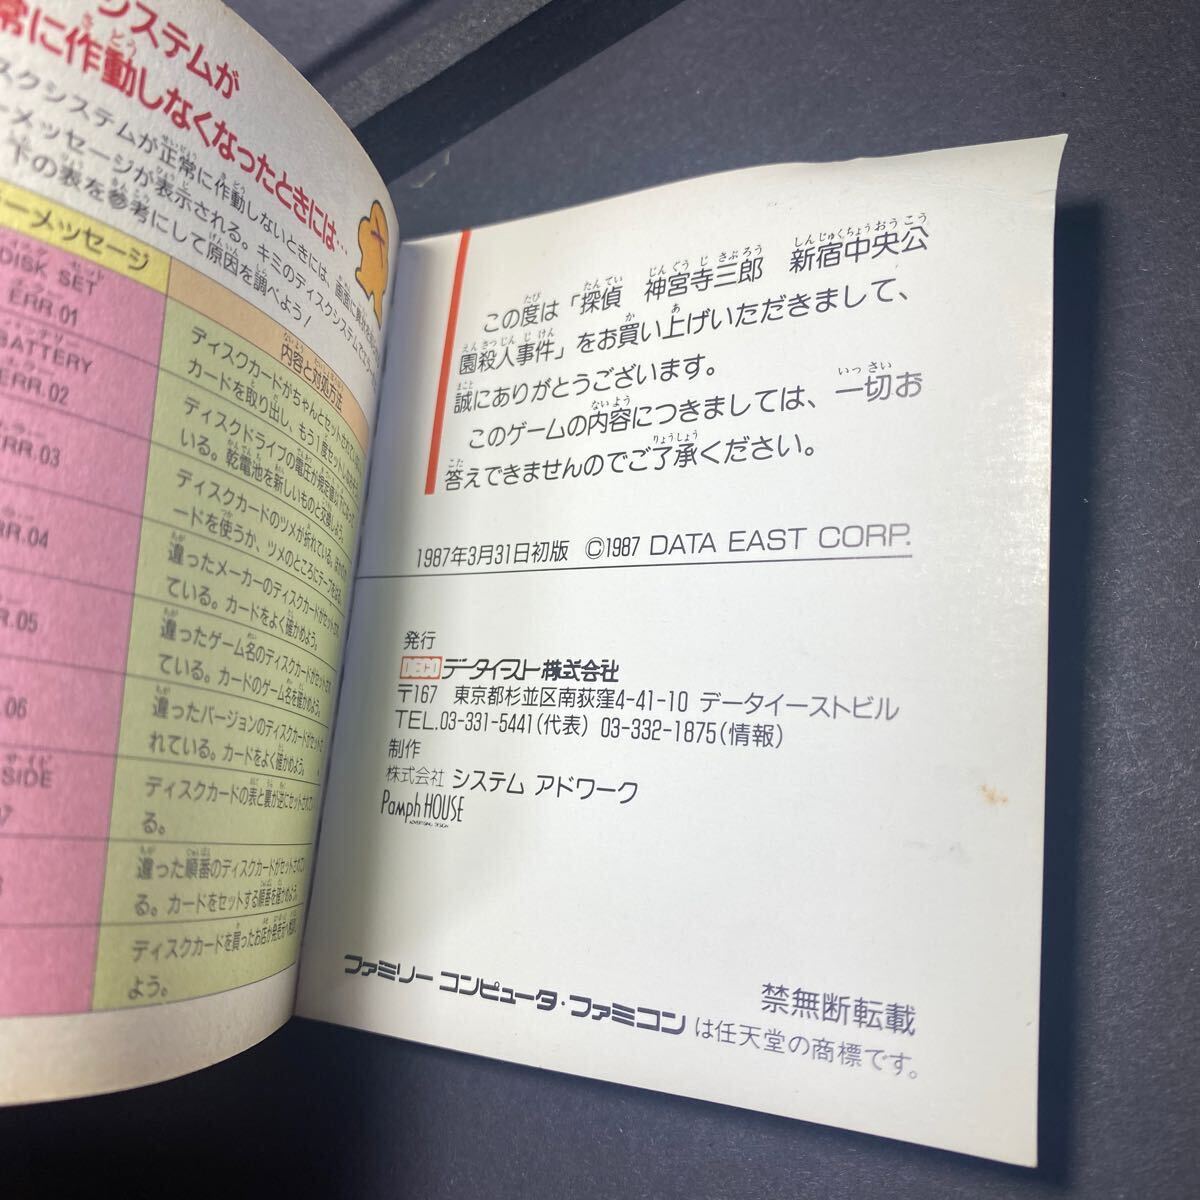 システムが
常に作動しなくなったときには…
スクシステムが正常に作動しないときは、画面に
ーメッセージが表示される。キミのディスクシステムで
下の表を参考にして原因を調べよう！
ーメッセージ
内容と対処方法
DISK SET
ERR.01
ディスクカードがちゃんとセットされて
カードを取り出し、もう1度セットし
BATTERY
ERR.02
ディスクドライブの電圧が規定値以下になって
いる。乾電池を新しいものと交換しよう。
ERR.03
ディスクカードのツメが折れている。
ードを使うか、ツメのところにテープをはる。
RR.04
違ったメーカーのディスクカードがセットされ
ている。カードをよく確かめよう。
R.05
違ったゲーム名のディスクカードがセットされ
ている。カードのゲーム名を確かめよう。
.06
違ったバージョンのディスクカードがセットさ
れている。カードをよく確かめよう。
SIDE
7
ディスクカードの表と裏が逆にセットされてい
る。
違った順番のディスクカードがセットされてい
る。カードをセットする順番を確かめよう。
ディスクカードを買ったお店か発売元へ相談し
よう。
この度は「探偵　神宮寺三郎　新宿中央公
園殺人事件」をお買い上げいただきまして、
誠にありがとうございます。
このゲームの内容につきましては、一切お
答えできませんのでご了承ください。
1987年3月31日初版　©1987 DATA EAST CORP.
発行
DECO データイースト株式会社
〒167　東京都杉並区南荻窪4-41-10 データイーストビル
TEL.03-331-5441(代表) 03-332-1875(情報)
制作
株式会社 システム アドワーク
Pamph HOUSE
ADVERTISING DESIGN
禁無断転載
ファミリー コンピュータ・ファミコン は任天堂の商標です。